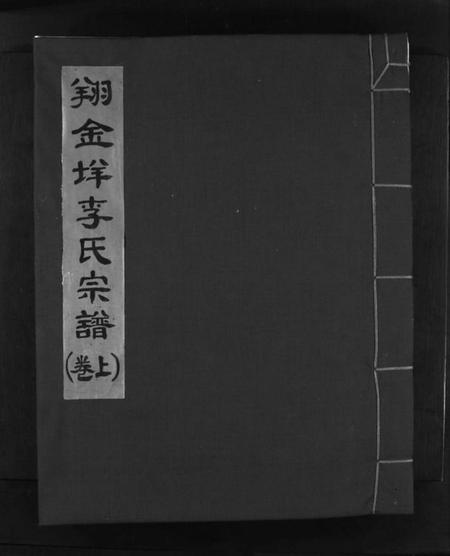 翔金垟李氏宗譜
(卷上)